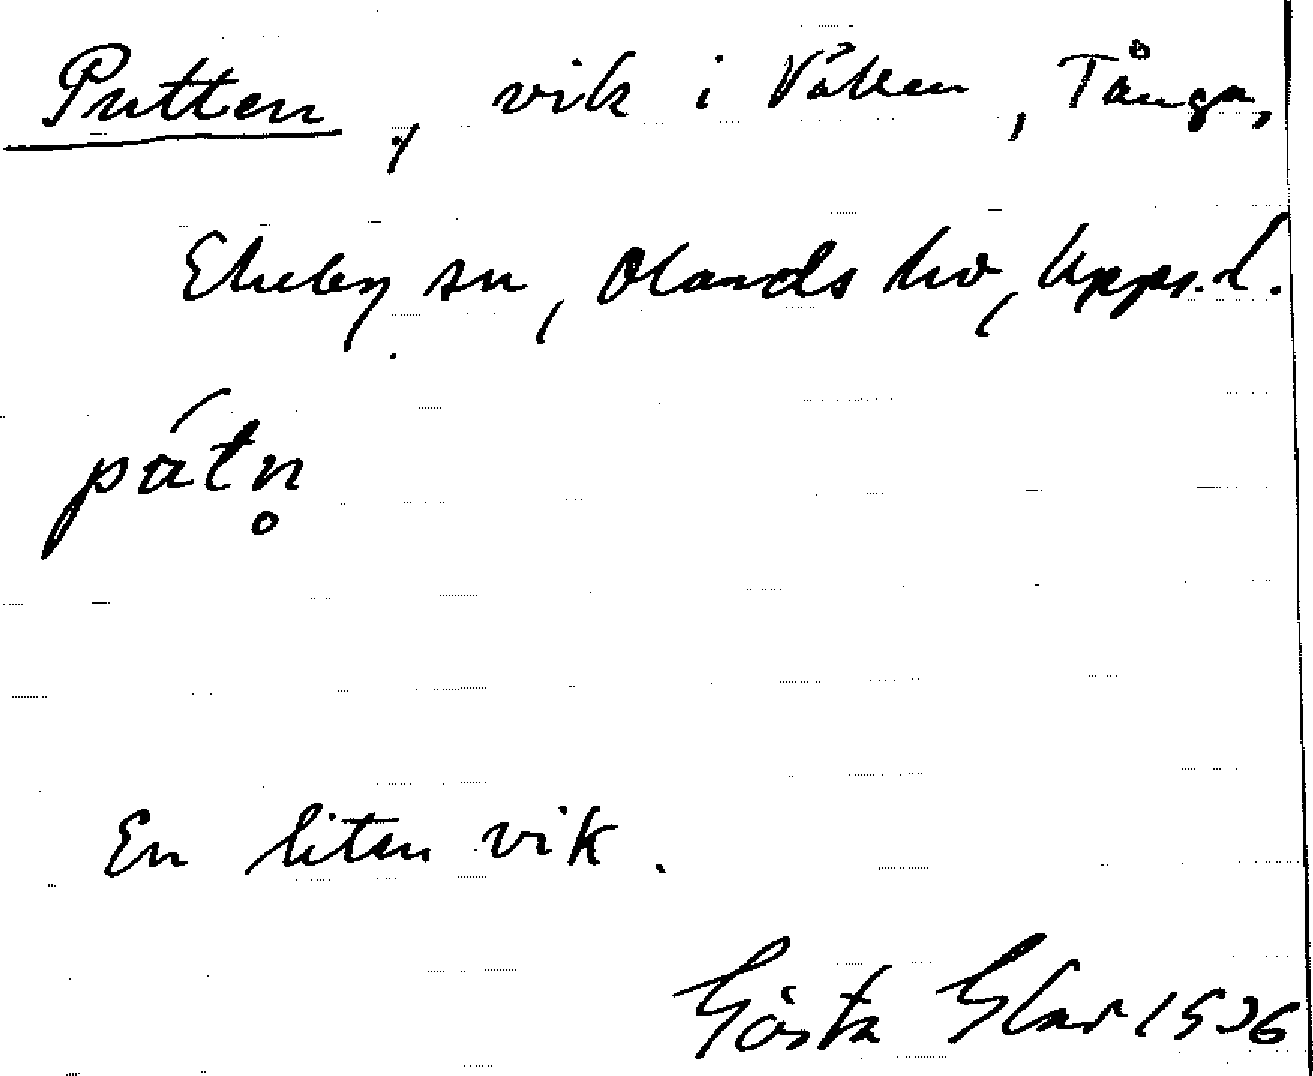 Putten, vik i Våken, Tånga,
Ekeby sn, Olands hd, Upps. l.
pátn̥
En liten vik.
Gösta 1936